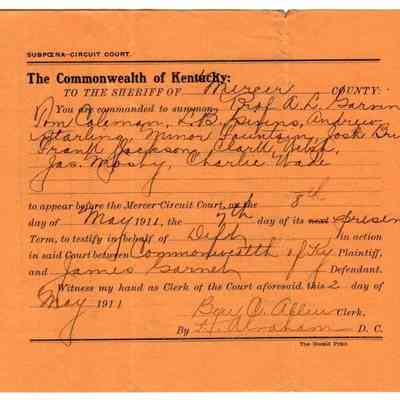 SUBPŒNA-CIRCUIT COURT.
The Commonwealth of Kentucky:
TO THE SHERIFF OF Mercer COUNTY:
You are commanded to summon Prof A. L. Garvin
Tom Coleman, L.B. Simms, Andrew
Starling, Minor Fountain, Josh
Frank Jackson, Clark Webb,
Jas. Mosby, Charlie Wade
to appear before the Mercer Circuit Court, on the 8th
day of May 1911, the 7th day of its next present
Term, to testify in behalf of Deft In action
in said Court between Commonwealth of Ky Plaintiff,
and James Garnet Defendant.
Witness my hand as Clerk of the Court aforesaid, this 2 day of
May 1911
Ben C. Allin Clerk,
By Abraham D. C.
The Herald Print